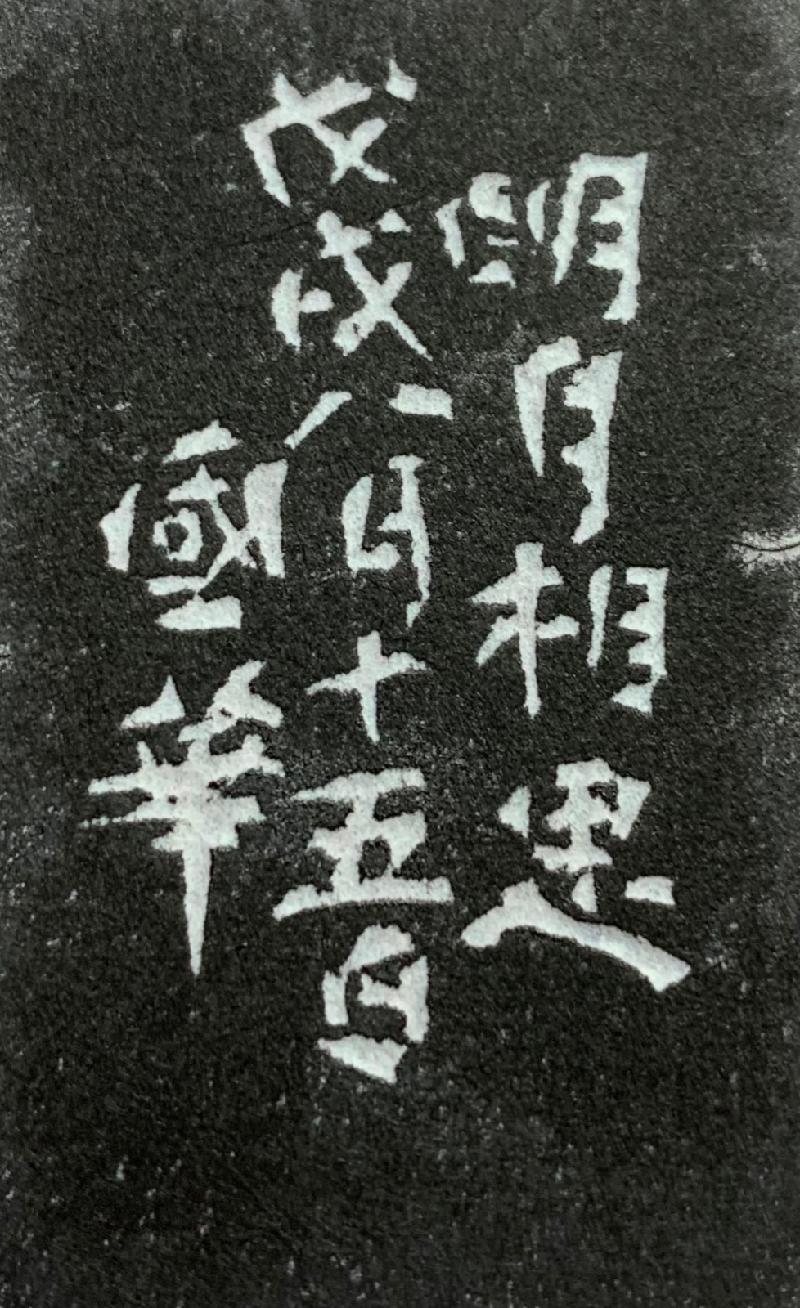 明月相思
戊戌八月十五日
國華